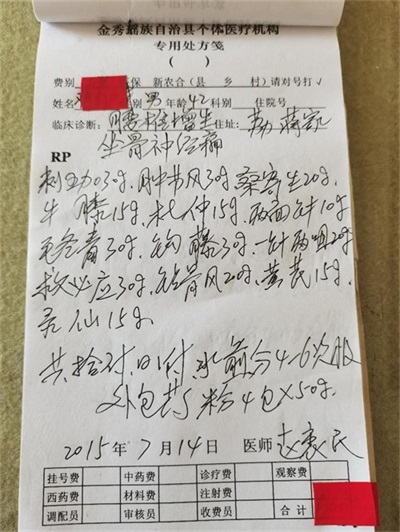 金秀瑶族自治县个体医疗机构
专用处方笺
( )
费别 保 新农合(县 乡 村)请对号打√
姓名 别 男 年龄 42 科别 住院号
临床诊断: 腰椎增生 住址:
坐骨神经痛
RP
30g, 肿节风30g, 桑寄生20g,
牛膝15g, 杜仲15g, 两面针10g
30g, 钩藤30g, 一针两咀20g
救必应30g, 钻骨风20g, 黄芪15g,
灵仙15g,
共拾付, 日1付 水煎分4-6次服
外包药粉4包X50g.
2015年7月14日 医师
挂号费 中药费 诊疗费 观察费
西药费 材料费 注射费
调配员 审核员 收费员 合计